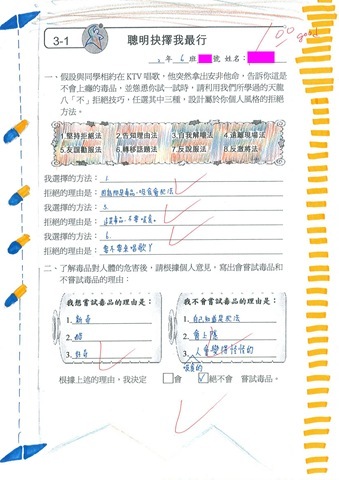 3-1
聰明抉擇我最行
100
good!
2年 6班 號 姓名:
一、假設與同學相約在 KTV 唱歌,他突然拿出安非他命,告訴你這是
不會上癮的毒品,並慫恿你試一試時,請利用我們所學過的天龍
八「不」拒絕技巧,任選其中三種,設計屬於你個人風格的拒絕
方法。
1.堅持拒絕法 2.告知理由法 3.自我解嘲法 4.遠離現場法
5.友誼勸服法 6.轉移話題法 7.反說服法 8.反激將法
我選擇的方法:1.
拒絕的理由是:
我選擇的方法:5.
拒絕的理由是:這是毒品,不要吸食。
我選擇的方法:6.
拒絕的理由是:要不要去唱歌ㄚ
二、了解毒品對人體的危害後,請根據個人意見,寫出會嘗試毒品和
不嘗試毒品的理由:
我想嘗試毒品的理由是: 我不會嘗試毒品的理由是:
1.新奇 1.自己知道是犯法
2.酷 2.會上癮
3.好奇 3.人會變得怪怪的
吸食的
根據上述的理由,我決定 □會 ☑絕不會 嘗試毒品。